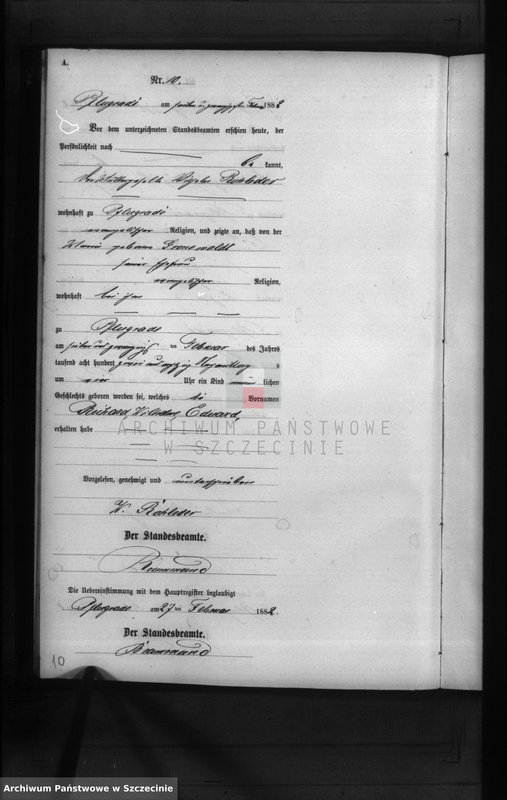 A.
Nr. 10.
Pflugrade am sieben u. zwanzigsten Febr. 1882
Vor dem unterzeichneten Standesbeamten erschien heute, der
Persönlichkeit nach
be kannt,
Rohleder
wohnhaft zu Pflugrade
evangelischer Religion, und zeigte an, daß von der
geborene Gronewaldt
seiner Ehefrau
evangelischer Religion,
wohnhaft bei ihm
zu Pflugrade
am sieben und zwanzigsten Februar des Jahres
tausend acht hundert zwei und achtzig Vormittags
um Uhr ein Kind männlichen
Geschlechts geboren worden sei, welches die Vornamen
Richard, Edward,
erhalten habe
Vorgelesen, genehmigt und unterschrieben
W. Rohleder
Der Standesbeamte.
Die Uebereinstimmung mit dem Hauptregister beglaubigt
Pflugrade am 27ten Februar 1882.
Der Standesbeamte.
10
ARCHIWUM PAŃSTWOWE
W SZCZECINIE
Archiwum Państwowe w Szczecinie